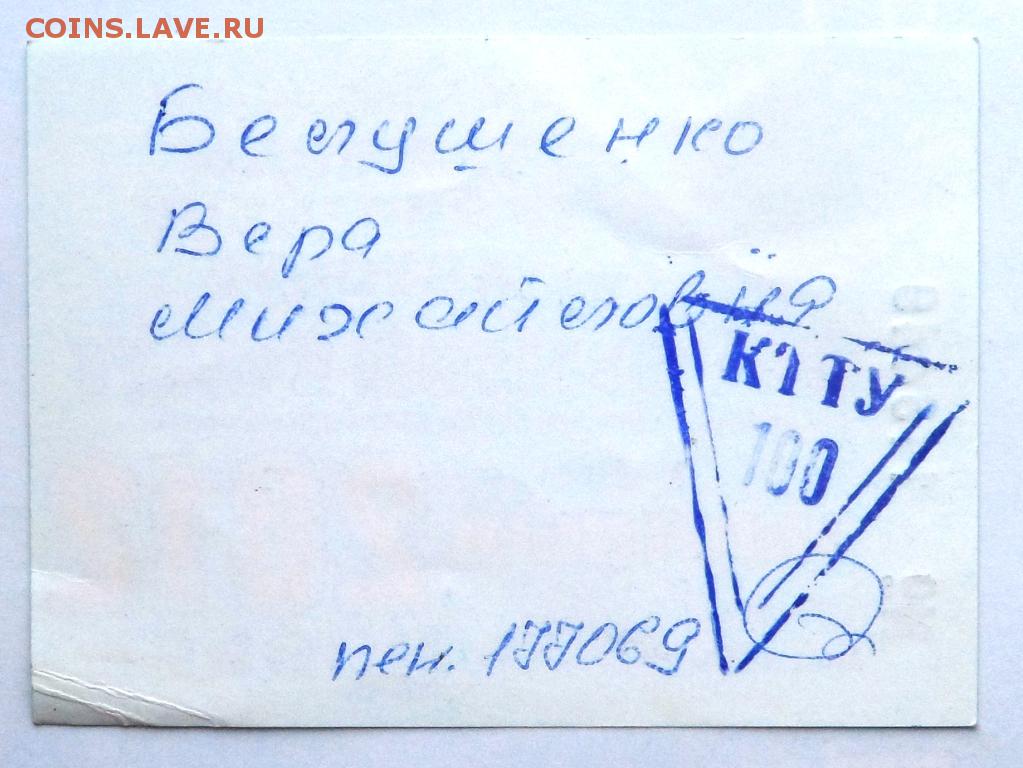 COINS.LAVE.RU
Белушенко
Вера
Михайловна
КПТУ
100
пен. 177069